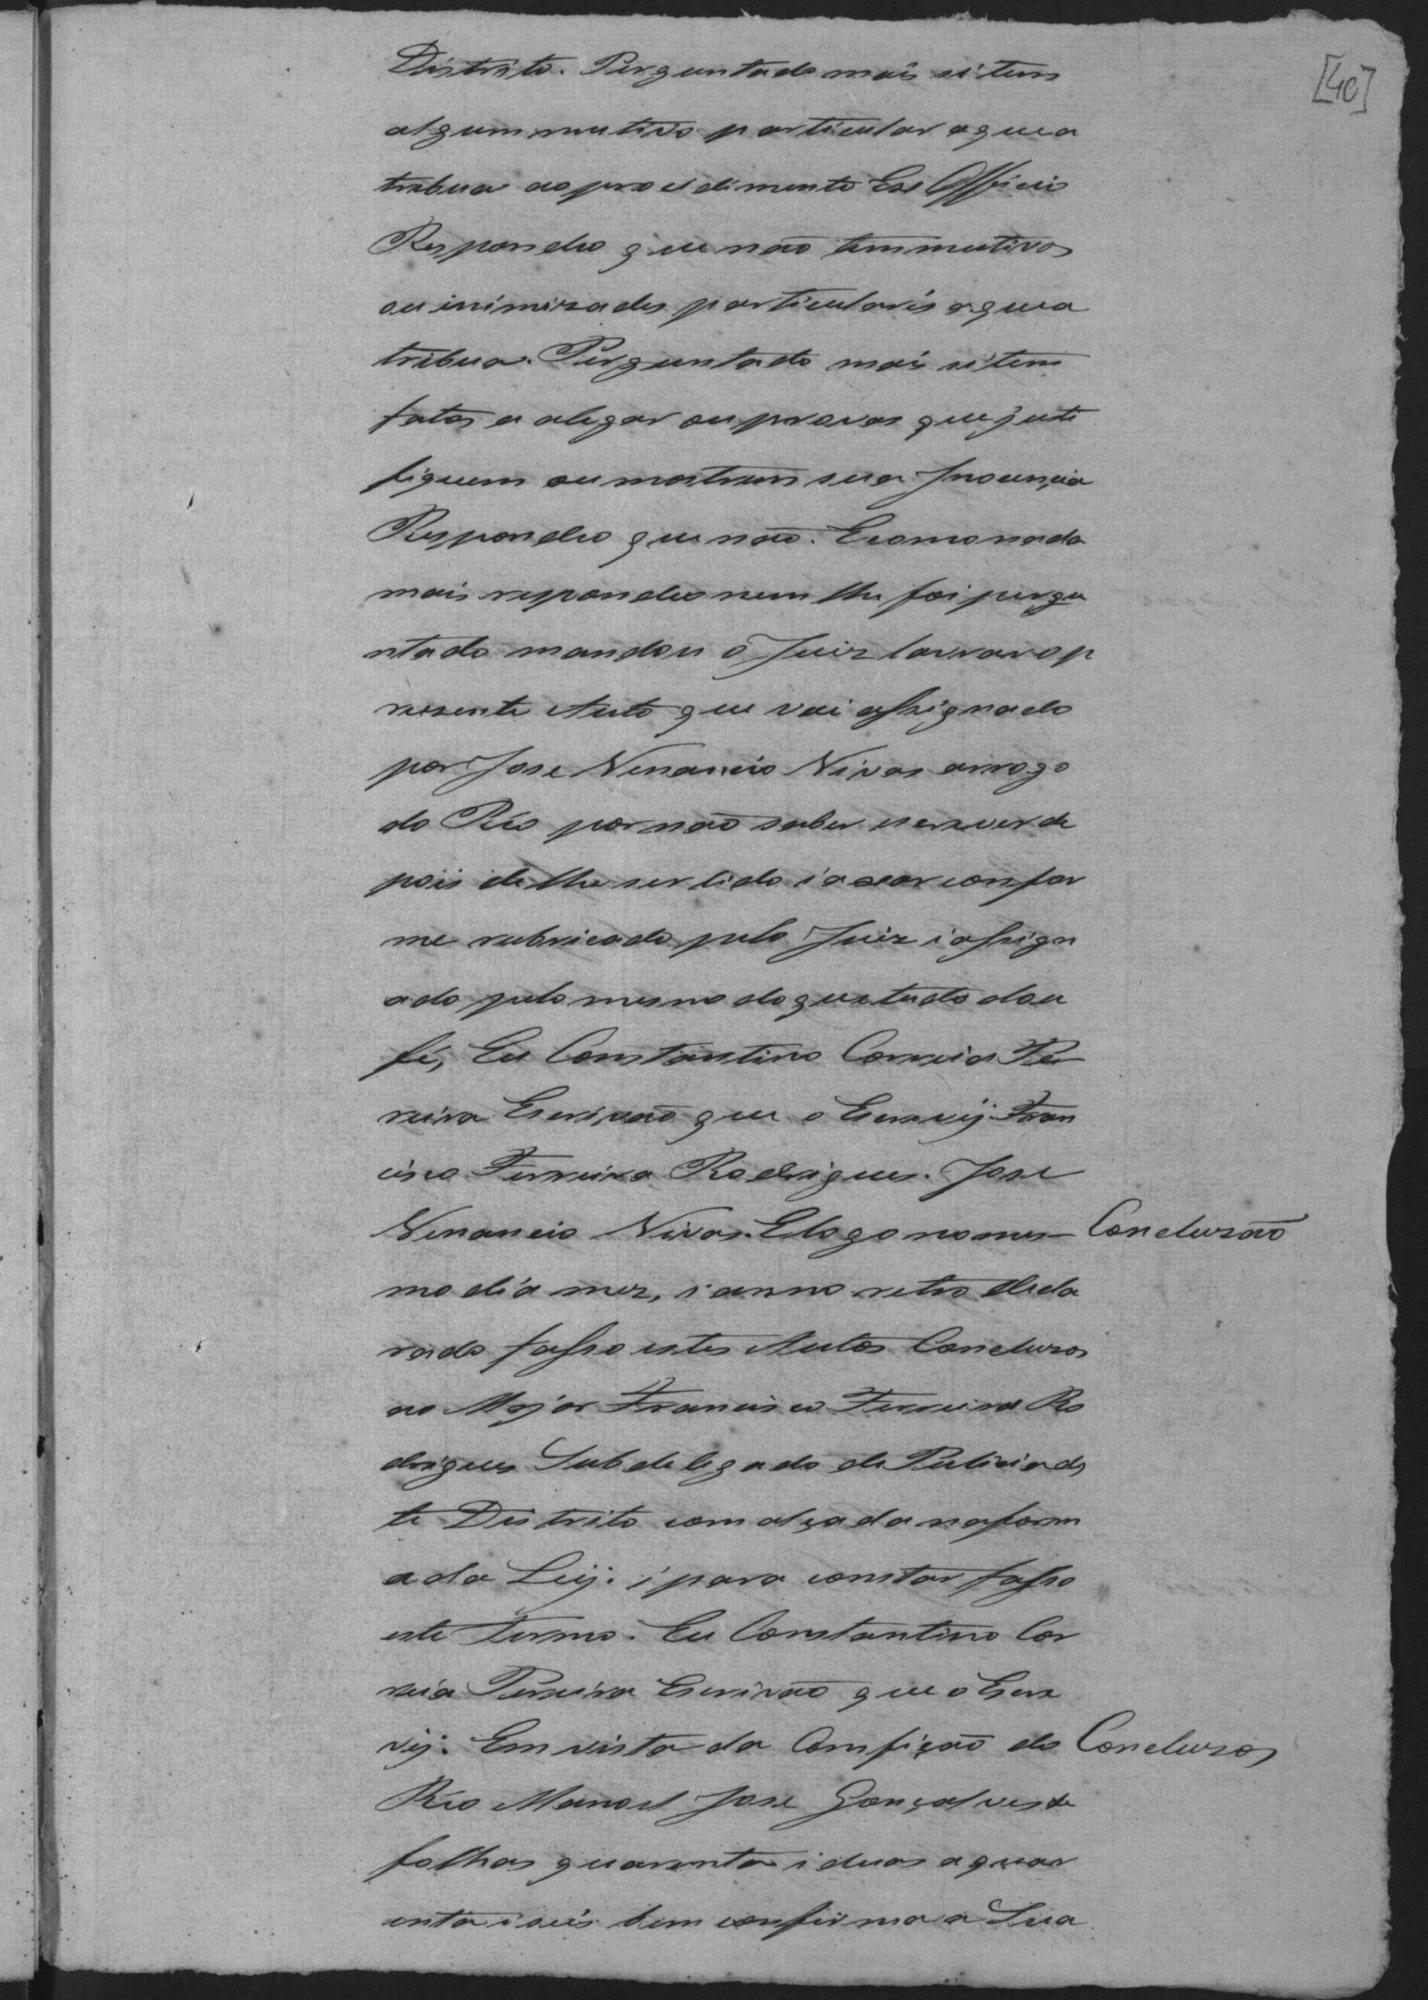 [40]
Distrito. Perguntado mais si tem
algum mutivo particular aque a
tribua ao prosedimento Ex Officio
Respondeo que não tem mutivos
ou inimizades particularis aque a
tribua. Perguntado mais si tem
fatos a alegar ou provas que justi
fiquem ou mostrem sua Inocencia
Respondeo que não. E como nada
mais respondeo nem lhe foi pergu
ntado mandou o Juiz lavrar o p
resente Auto que vai assignado
por Jose Venancio Vivas arrogo
do Réo por não saber escrever de
pois de lhe ser lido i axar confor
me rubricado pelo Juiz i assign
ado pelo mesmo do que tudo dou
fé, Eu Constantino Correia Pe
reira Escrivão que o Escrevij. Fran
cisco Ferreira Rodrigues. Jose
Venancio Vivas. E logo no mes
Concluzão
mo dia mez, i anno retro decla
rado fasso estes Autos Concluzos
ao Major Francisco Ferreira Ro
drigues Subdelegado de Pulicia des
te Distrito com alçada na form
a da Leij. i para constar fasso
este Termo. Eu Constantino Cor
reia Pereira Escrivão que o Escre
vij. Em vista da Comfição do
Concluzos
Réo Manoel Jose Gonçalves de
folhas quarenta i duas a quar
enta i seis bem confirma a Sua